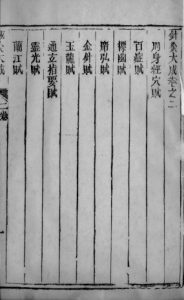 針灸大成卷之二
周身經穴賦
百症賦
標幽賦
席弘賦
金針賦
玉龍賦
通玄指要賦
靈光賦
蘭江賦